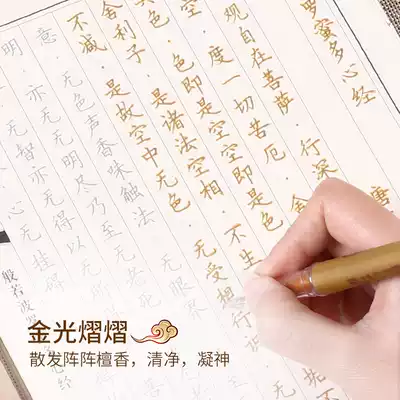 罗蜜多心经
唐
观自在菩萨·行深
空·度一切苦厄·舍
色·色即是空空即是色
舍利子·是诸法空相·不生
不减·是故空中无色·无受想
意·无色声香味触法·无眼界
明·亦无无明尽乃至
无智亦无得以无
心无挂碍
般若波
金光熠熠
散发阵阵檀香，清净，凝神